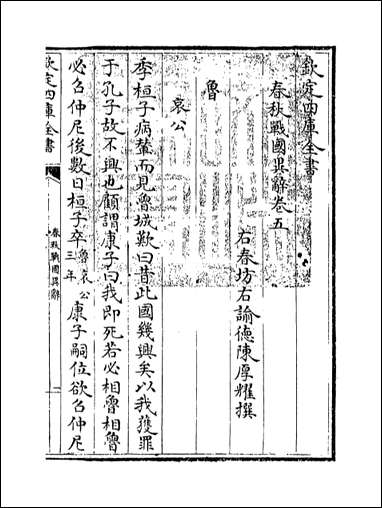 欽定四庫全書
春秋戰國異辭卷五
右春坊右諭德陳厚耀撰
魯
哀公
季桓子病輦而見魯城歎曰昔此國幾興矣以我獲罪
于孔子故不興也顧謂康子曰我即死若必相魯相魯
必召仲尼後數日桓子卒魯哀公三年康子嗣位欲召仲尼
欽定四庫全書
春秋戰國異辭
一